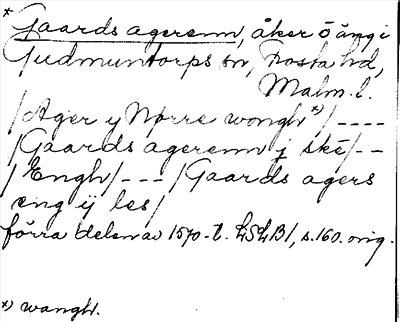 * Gaards agerenn, åker o äng i
Gudmuntorps sn, Frosta hd,
Malm. l.
/Ager y Nørre wongh *)/ ----
/Gaards agerenn j ske/--
/Engh/--- /Gaards agers
eng ij les/
förra delen av 1570-t. LSLB1, s.160. orig.
*) wangh.